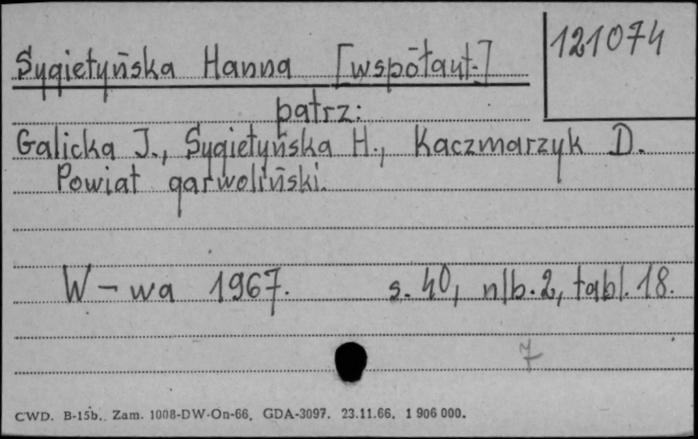 121074
Sygietyńska Hanna [współaut.]
patrz:
Galicka J., Sygietyńska H., Kaczmarzyk D.
Powiat garwoliński.
W-wa 1967. s. 40, nlb. 2, tabl. 18.
7
CWD. B-15b. Zam. 1008-DW-On-66. GDA-3097. 23.11.66. 1 906 000.